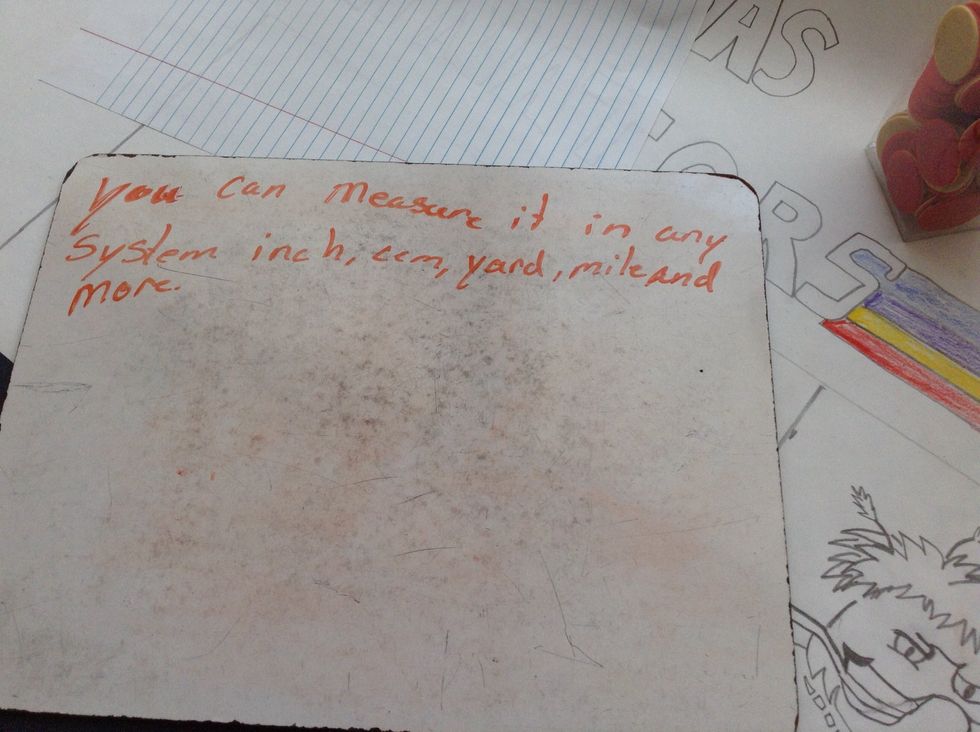 VAS
ORS
you can measure it in any
System inch, ccm, yard, mile and
more.